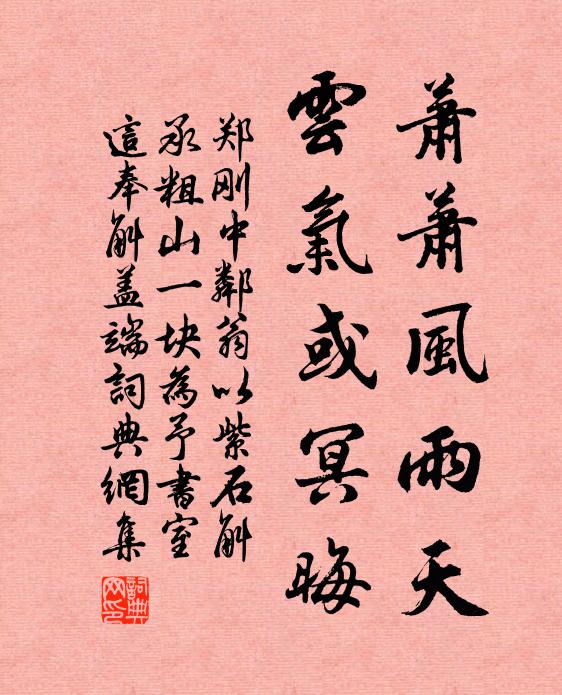 蕭蕭風雨天
雲氣或冥晦
郑刚中鄰翁以紫石斛
承粗山一块為予書室
這奉斛盖端詞典網集
詞典網印